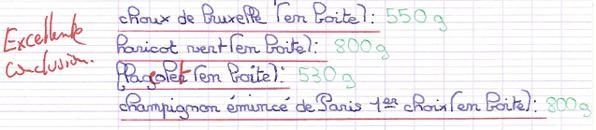 choux de Bruxelle (en boite): 550 g
Excellente
haricot vert (en boite): 800g
conclusion.
flageolet (en boite): 530g
champignon émincé de Paris 1er choix (en boite): 800g